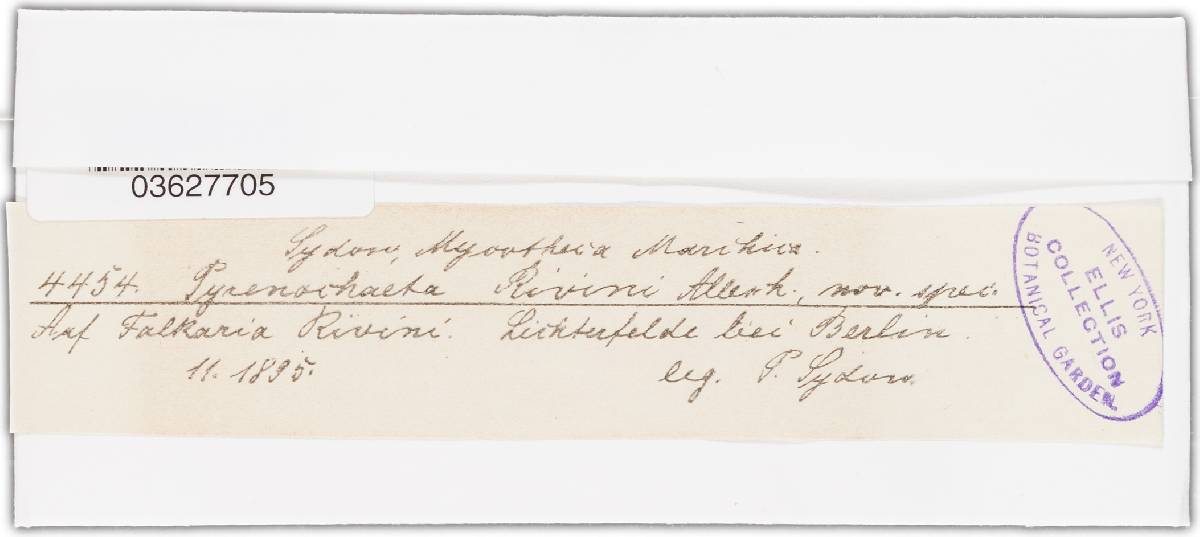 03627705
Sydow, Mycotheca Marchica.
4454. Pyrenochaeta Rivini Allesch., nov. spec.
Auf Falkaria Rivini. Lichterfelde bei Berlin.
11. 1895. leg. P. Sydow.
NEW YORK
ELLIS
COLLECTION
BOTANICAL GARDEN.